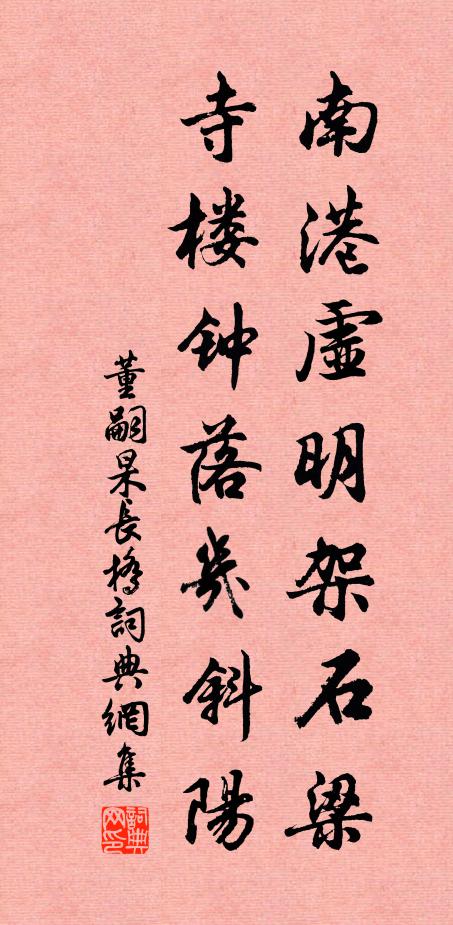 南港虚明架石梁
寺楼钟落几斜陽
董嗣杲長橋詞典網集
詞典网印